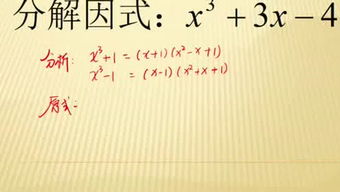 分解因式：x³+3x-4
分析：x³+1=(x+1)(x²-x+1)
x³-1=(x-1)(x²+x+1)
原式=